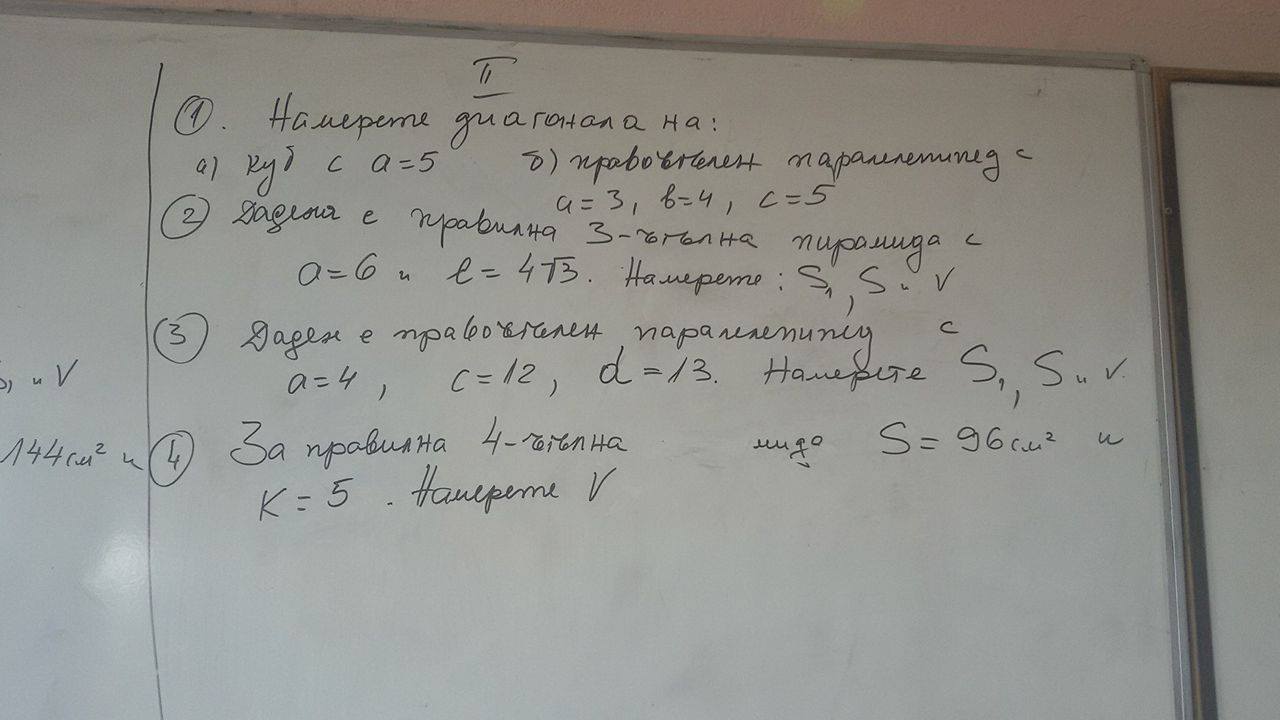 II
① . Намерете диагонала на:
а) куб с a=5 б) правоъгълен паралелепипед с
a=3, b=4, c=5
② Дадена е правилна 3-ъгълна пирамида с
a=6 и l=4√3. Намерете: S₁, S и V
③ Даден е правоъгълен паралелепипед с
a=4, c=12, d=13. Намерете S₁, S и V.
и V
144 см² и
④ За правилна 4-ъгълна мида S=96 см² и
K=5 . Намерете V